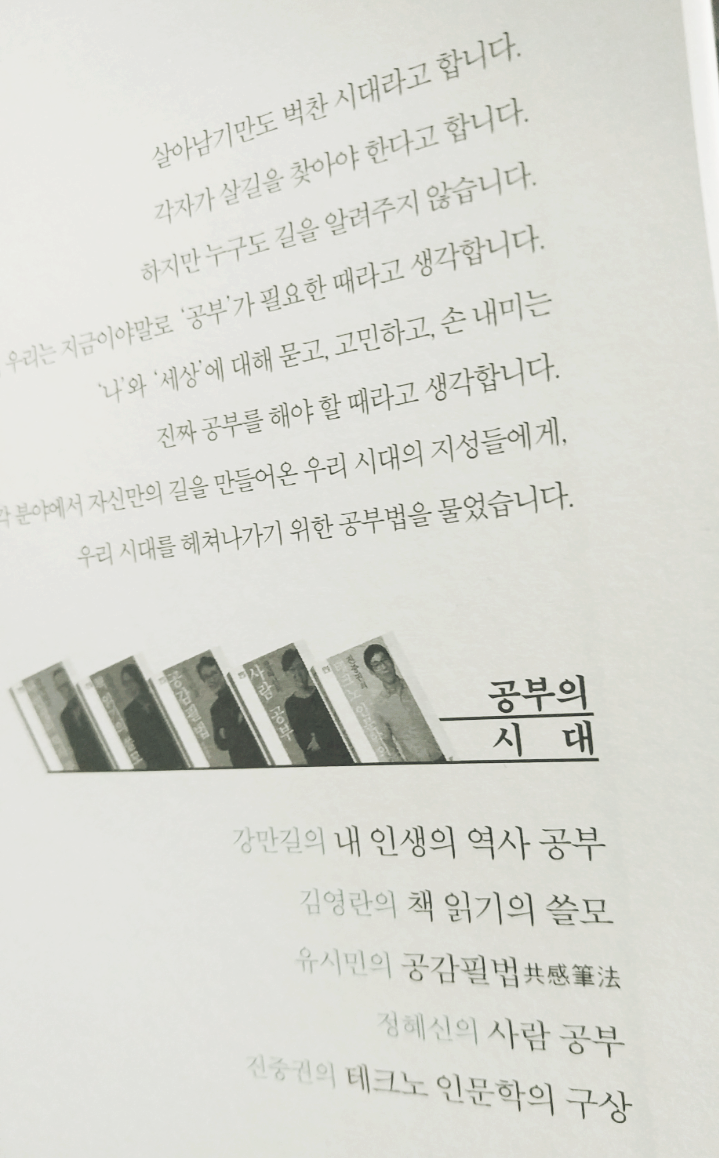 살아남기만도 벅찬 시대라고 합니다.
각자가 살길을 찾아야 한다고 합니다.
하지만 누구도 길을 알려주지 않습니다.
우리는 지금이야말로 '공부'가 필요한 때라고 생각합니다.
'나'와 '세상'에 대해 묻고, 고민하고, 손 내미는
진짜 공부를 해야 할 때라고 생각합니다.
각 분야에서 자신만의 길을 만들어온 우리 시대의 지성들에게,
우리 시대를 헤쳐나가기 위한 공부법을 물었습니다.
사람 공부
공부의
시 대
강만길의 내 인생의 역사 공부
김영란의 책 읽기의 쓸모
유시민의 공감필법共感筆法
정혜신의 사람 공부
진중권의 테크노 인문학의 구상